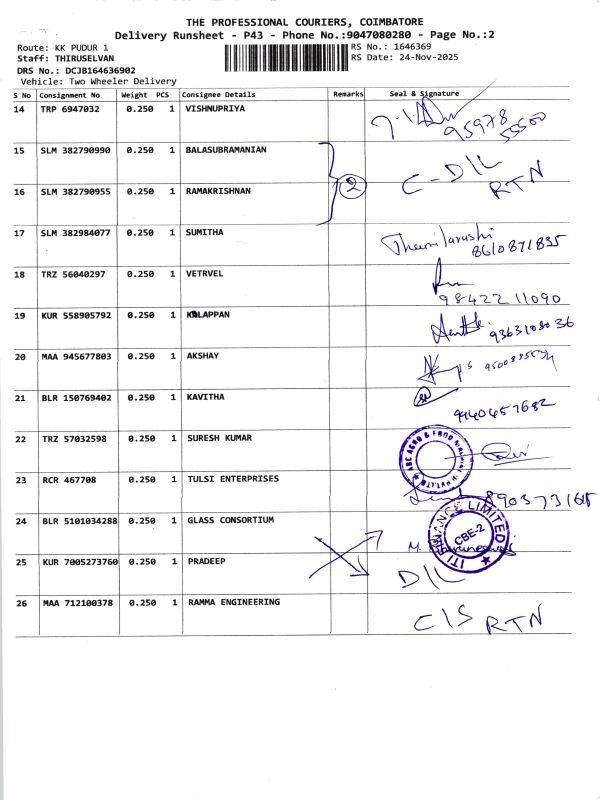 THE PROFESSIONAL COURIERS, COIMBATORE
Delivery Runsheet - P43 - Phone No.:9047080280 - Page No.:2
Route: KK PUDUR 1
RS No.: 1646369
Staff: THIRUSELVAN
RS Date: 24-Nov-2025
DRS No.: DCJB164636902
Vehicle: Two Wheeler Delivery
S No Consignment No Weight PCS Consignee Details Remarks Seal & Signature
14 TRP 6947032 0.250 1 VISHNUPRIYA
95978 55500
15 SLM 382790990 0.250 1 BALASUBRAMANIAN
2 C-D/L
RTN
16 SLM 382790955 0.250 1 RAMAKRISHNAN
17 SLM 382984077 0.250 1 SUMITHA
8610871835
18 TRZ 56040297 0.250 1 VETRVEL
98422 11090
19 KUR 558905792 0.250 1 KALAPPAN
9363108036
20 MAA 945677803 0.250 1 AKSHAY
21 BLR 150769402 0.250 1 KAVITHA
9940457682
22 TRZ 57032598 0.250 1 SURESH KUMAR
ABC AGRO & FOOD
23 RCR 467708 0.250 1 TULSI ENTERPRISES
24 BLR 5101034288 0.250 1 GLASS CONSORTIUM
ITI FINANCE LIMITED
CBE-2
25 KUR 7005273760 0.250 1 PRADEEP
D/L
26 MAA 712100378 0.250 1 RAMMA ENGINEERING
C/S RTN